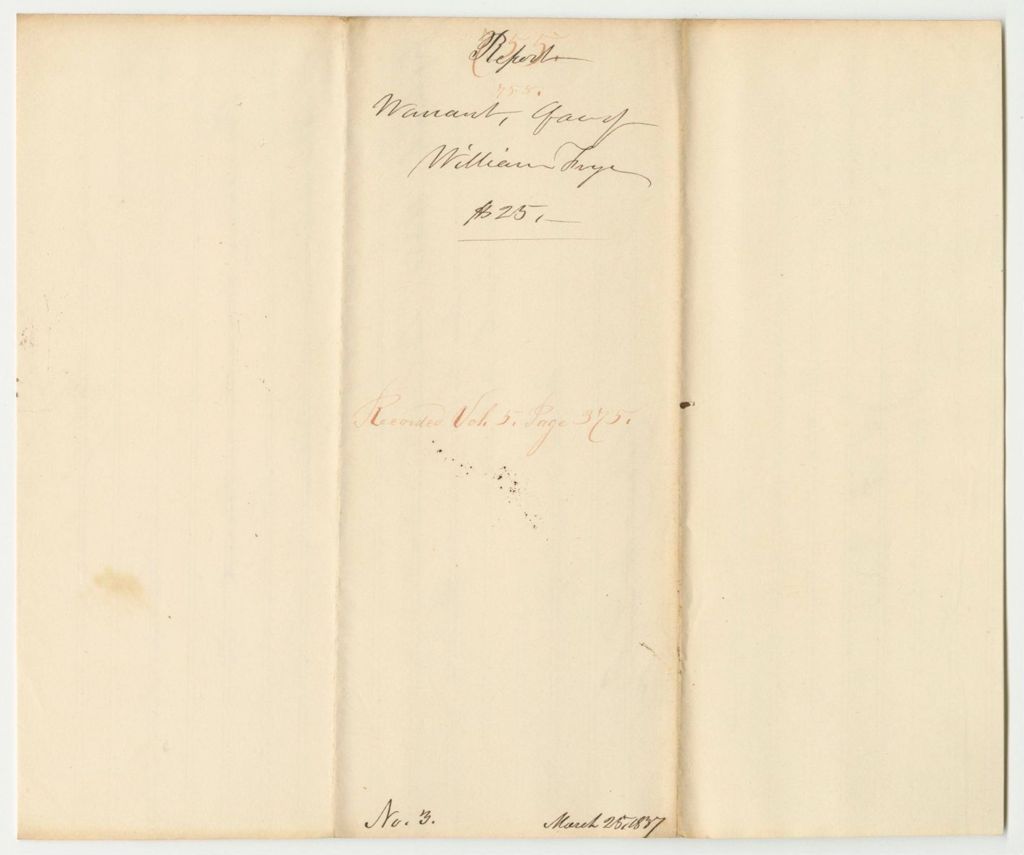 755
Report
755.
Warrant, fav of
William Frye
$25,—
Recorded Vol. 5. Page 375.
No. 3.
March 25, 1837